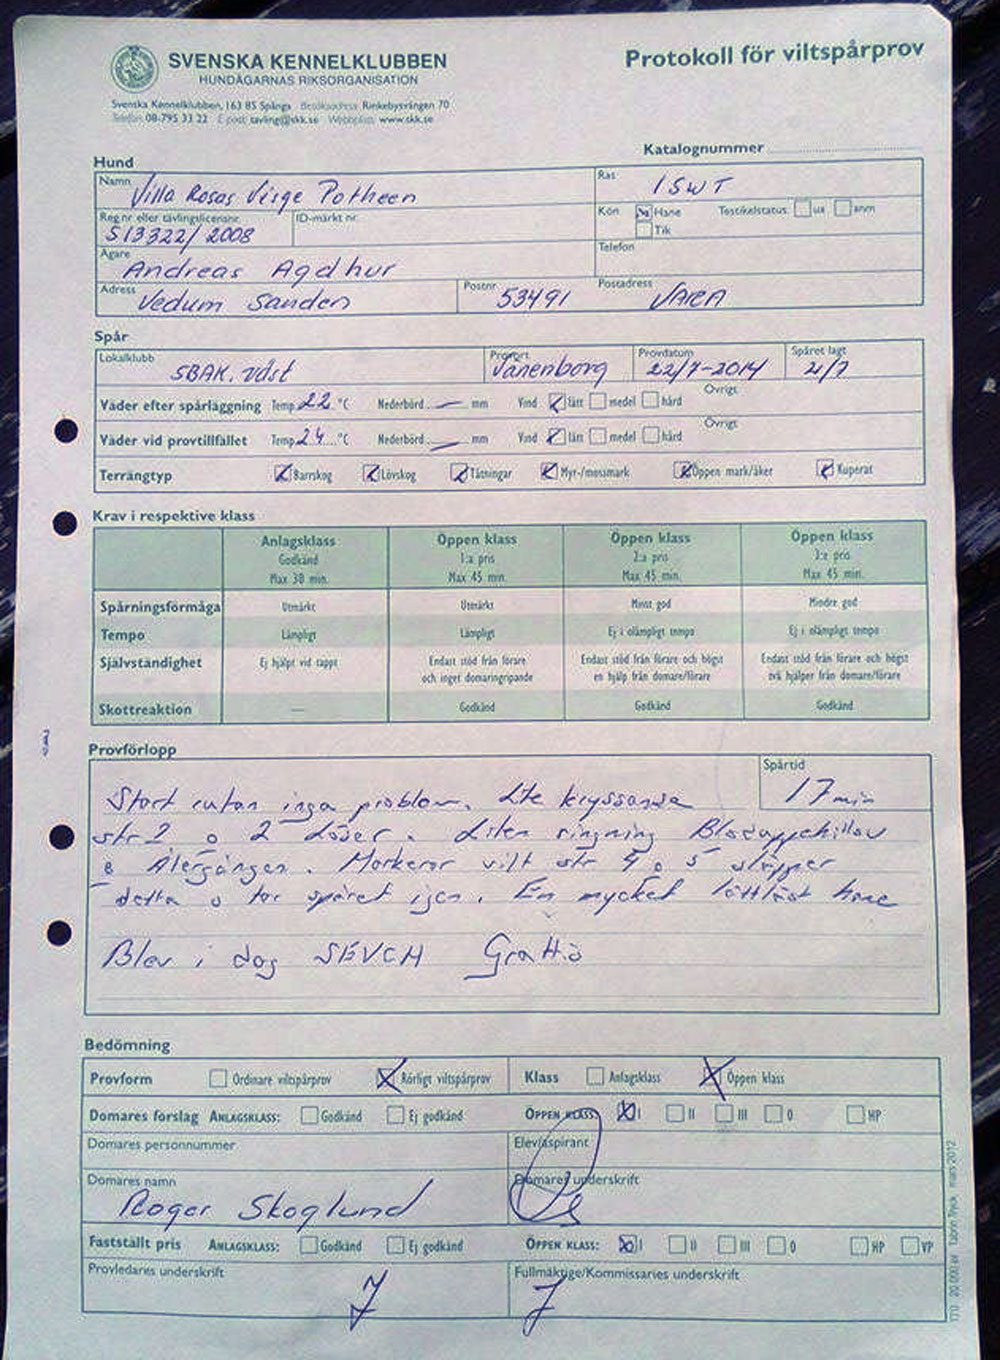 SVENSKA KENNELKLUBBEN
HUNDÄGARNAS RIKSORGANISATION
Svenska Kennelklubben, 163 85 Spånga Besöksadress Rinkebysvängen 70
Telefon 08-795 33 22 E-post tavling@skk.se Webbplats www.skk.se
Protokoll för viltspårprov
Katalognummer
Hund
Namn Villa Rosas Visge Potheen Ras ISWT
Reg nr eller tävlingslicensnr S13322/2008 ID-märkt nr Kön Hane Tik Testikelstatus ua anm
Ägare Andreas Agdhur Telefon
Adress Vedum Sanden Postnr 53491 Postadress VARA
Spår
Lokalklubb SBAK. väst Provort Vänenborg Provdatum 22/7-2014 Spåret lagt 21/7
Väder efter spårläggning Temp 22 °C Nederbörd — mm Vind lätt medel hård Övrigt
Väder vid provtillfället Temp 24 °C Nederbörd — mm Vind lätt medel hård Övrigt
Terrängtyp Barrskog Lövskog Tätningar Myr-/mossmark Öppen mark/åker Kuperat
Krav i respektive klass
Anlagsklass Öppen klass Öppen klass Öppen klass
Godkänd 1:a pris 2:a pris 3:e pris
Max 30 min. Max 45 min. Max 45 min. Max 45 min.
Spårningsförmåga Utmärkt Utmärkt Minst god Mindre god
Tempo Lämpligt Lämpligt Ej i olämpligt tempo Ej i olämpligt tempo
Självständighet Ej hjälpt vid tappt Endast stöd från förare och inget domaringripande Endast stöd från förare och högst en hjälp från domare/förare Endast stöd från förare och högst två hjälper från domare/förare
Skottreaktion — Godkänd Godkänd Godkänd
Provförlopp
Spårtid 17 min
Start utan inga problem. Lite kryssande
str 2 o 2 Liten ringning
Återgången. Markerar vilt str 4 o 5 släpper
detta o tar spåret igen. En mycket lättläst hane
Blev i dag SEVCH Grattis
Bedömning
Provform Ordinare viltspårprov Rörligt viltspårprov Klass Anlagsklass Öppen klass
Domares förslag ANLAGSKLASS: Godkänd Ej godkänd ÖPPEN KLASS: I II III 0 HP
Domares personnummer Elev/aspirant
Domares namn Roger Skoglund Domares underskrift
Fastställt pris ANLAGSKLASS: Godkänd Ej godkänd ÖPPEN KLASS: I II III 0 HP VP
Provledares underskrift Fullmäktige/Kommissaries underskrift
mars 2012